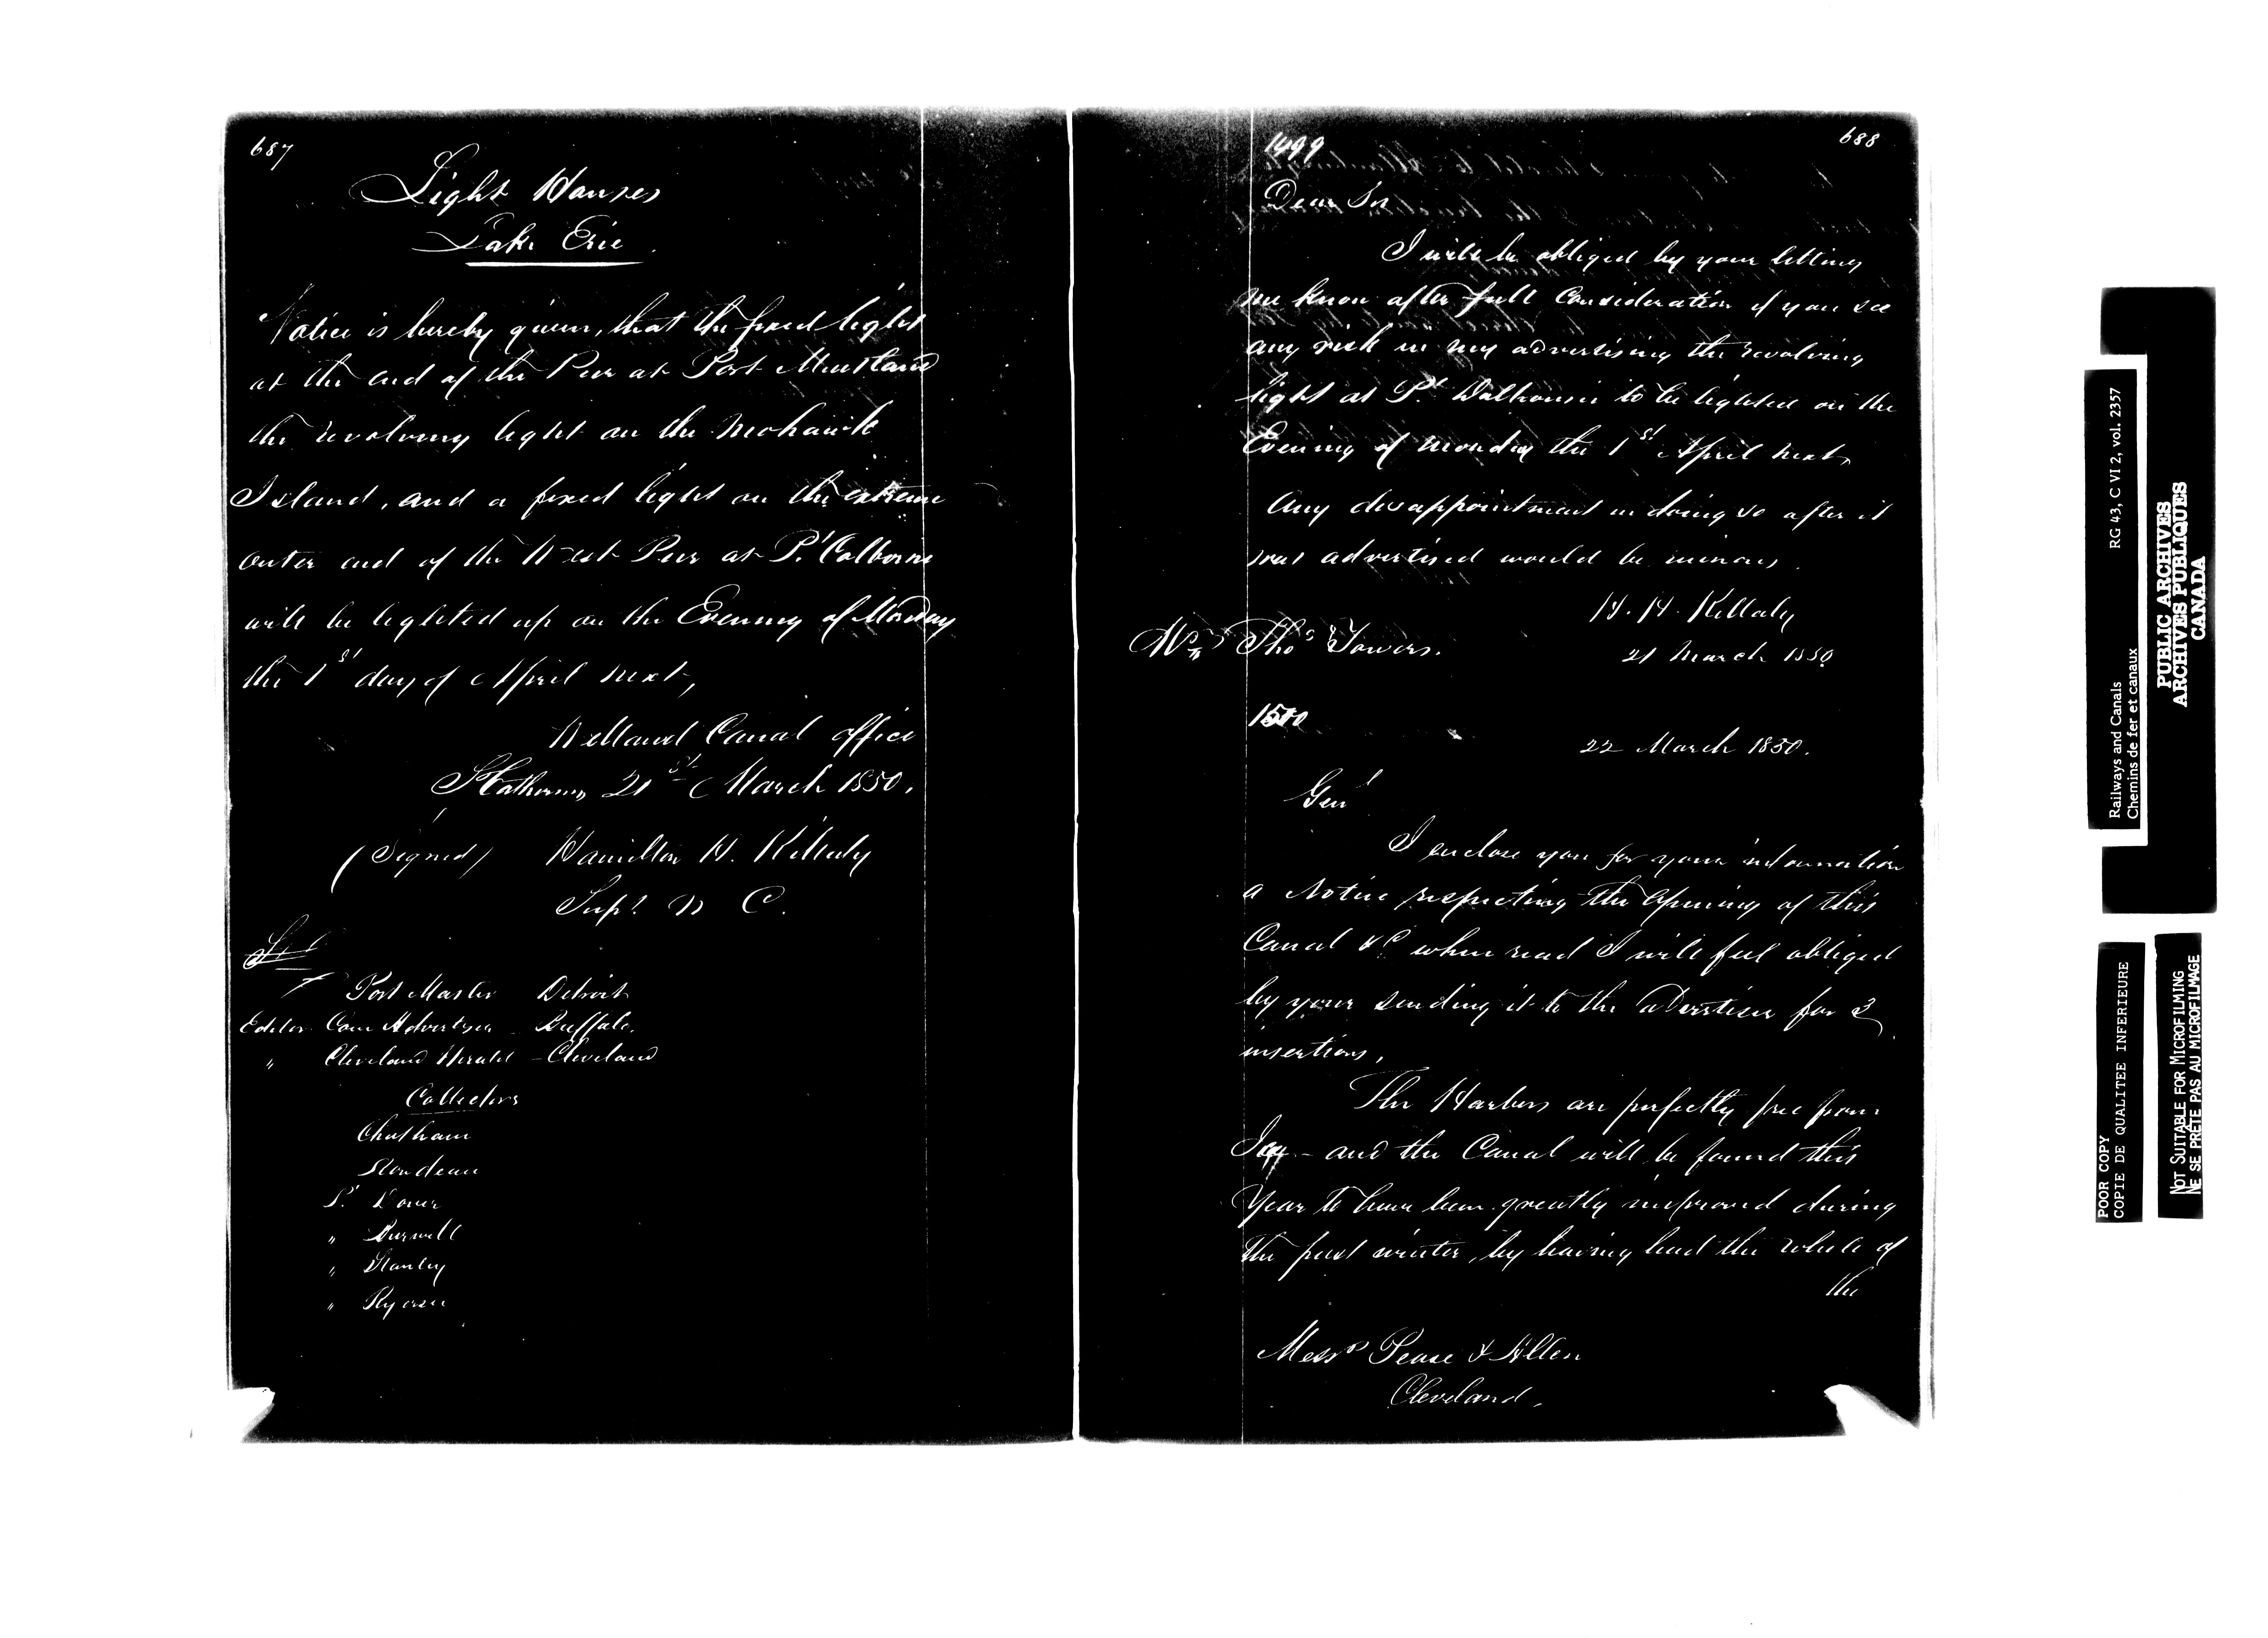 687
Light Houses
Lake Erie.
Notice is hereby given, that the fixed light
at the end of the Pier at Port Maitland
the revolving light on the Mohawk
Island, and a fixed light on the extreme
outer end of the West Pier at Pt Colborne
will be lighted up on the Evening of Monday
the 1st day of April next,
Welland Canal office
St Catherines 21st March 1850.
(Signed) Hamilton H. Killaly
Supt. W C.
Post Master Detroit
Editor Com Advertiser - Buffalo.
" Cleveland Herald - Cleveland
Collectors
Chatham
Rondeau
Pt Dover
" Burwell
" Stanley
" Ryerse
688
1499
Dear Sir
I will be obliged by your letting
me know after full Consideration if you see
any risk in my advertising the revolving
light at Pt Dalhousie to be lighted on the
Evening of Monday the 1st April next,
Any disappointment in doing so after it
was advertised would be ruinous.
H. H. Killaly
Thos Towers.
21 March 1850
1500
22 March 1850.
Gen
I enclose you for your information
a Notice respecting the Opening of this
Canal &c when read I will feel obliged
by your sending it to the advertiser for 3
insertions,
The Harbors are perfectly free from
Ice - and the Canal will be found this
Year to have been greatly improved during
the past winter, by having had the whole of
the
Messrs Pease & Allen
Cleveland.
RG 43, C VI 2, vol. 2357
Railways and Canals
Chemins de fer et canaux
PUBLIC ARCHIVES
ARCHIVES PUBLIQUES
CANADA
POOR COPY
COPIE DE QUALITEE INFERIEURE
NOT SUITABLE FOR MICROFILMING
NE SE PRÊTE PAS AU MICROFILMAGE